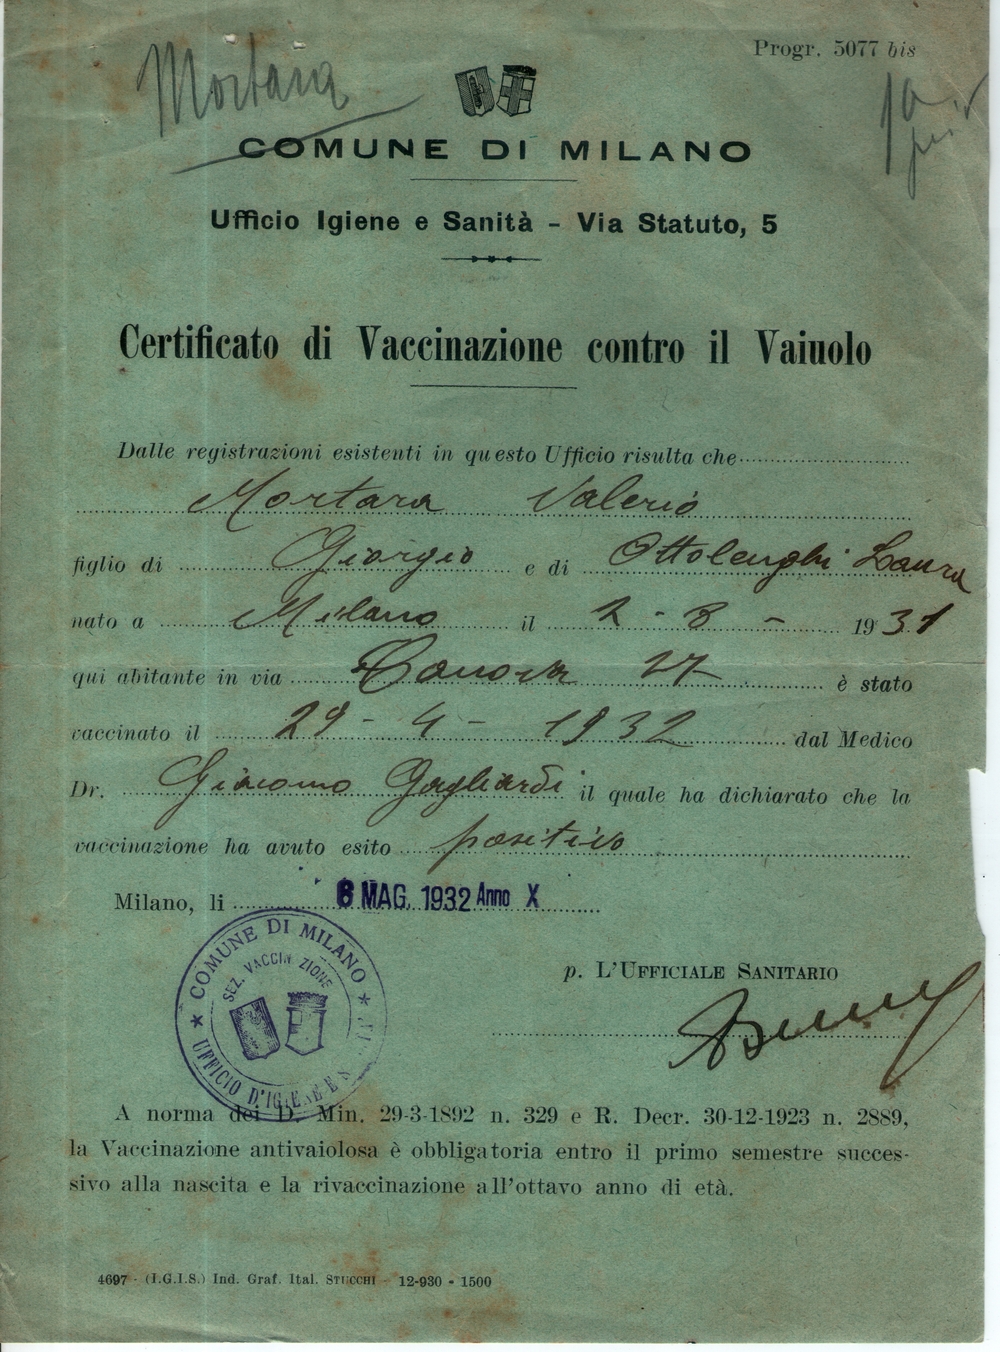 Progr. 5077 bis
Mortara
COMUNE DI MILANO
Ufficio Igiene e Sanità - Via Statuto, 5
Certificato di Vaccinazione contro il Vaiuolo
Dalle registrazioni esistenti in questo Ufficio risulta che
Mortara Valerio
figlio di Giorgio e di Ottolenghi Laura
nato a Milano il 2 - 8 - 1931
qui abitante in via Canova 27 è stato
vaccinato il 29 - 4 - 1932 dal Medico
Dr. Giacomo Gagliardi il quale ha dichiarato che la
vaccinazione ha avuto esito positivo
Milano, li 6 MAG. 1932 Anno X
COMUNE DI MILANO
SEZ. VACCIN ZIONE
UFFICIO D'IGIENE E S
p. L'UFFICIALE SANITARIO
A norma dei D. Min. 29-3-1892 n. 329 e R. Decr. 30-12-1923 n. 2889,
la Vaccinazione antivaiolosa è obbligatoria entro il primo semestre succes-
sivo alla nascita e la rivaccinazione all'ottavo anno di età.
4697 - (I.G.I.S.) Ind. Graf. Ital. STUCCHI - 12-930 - 1500